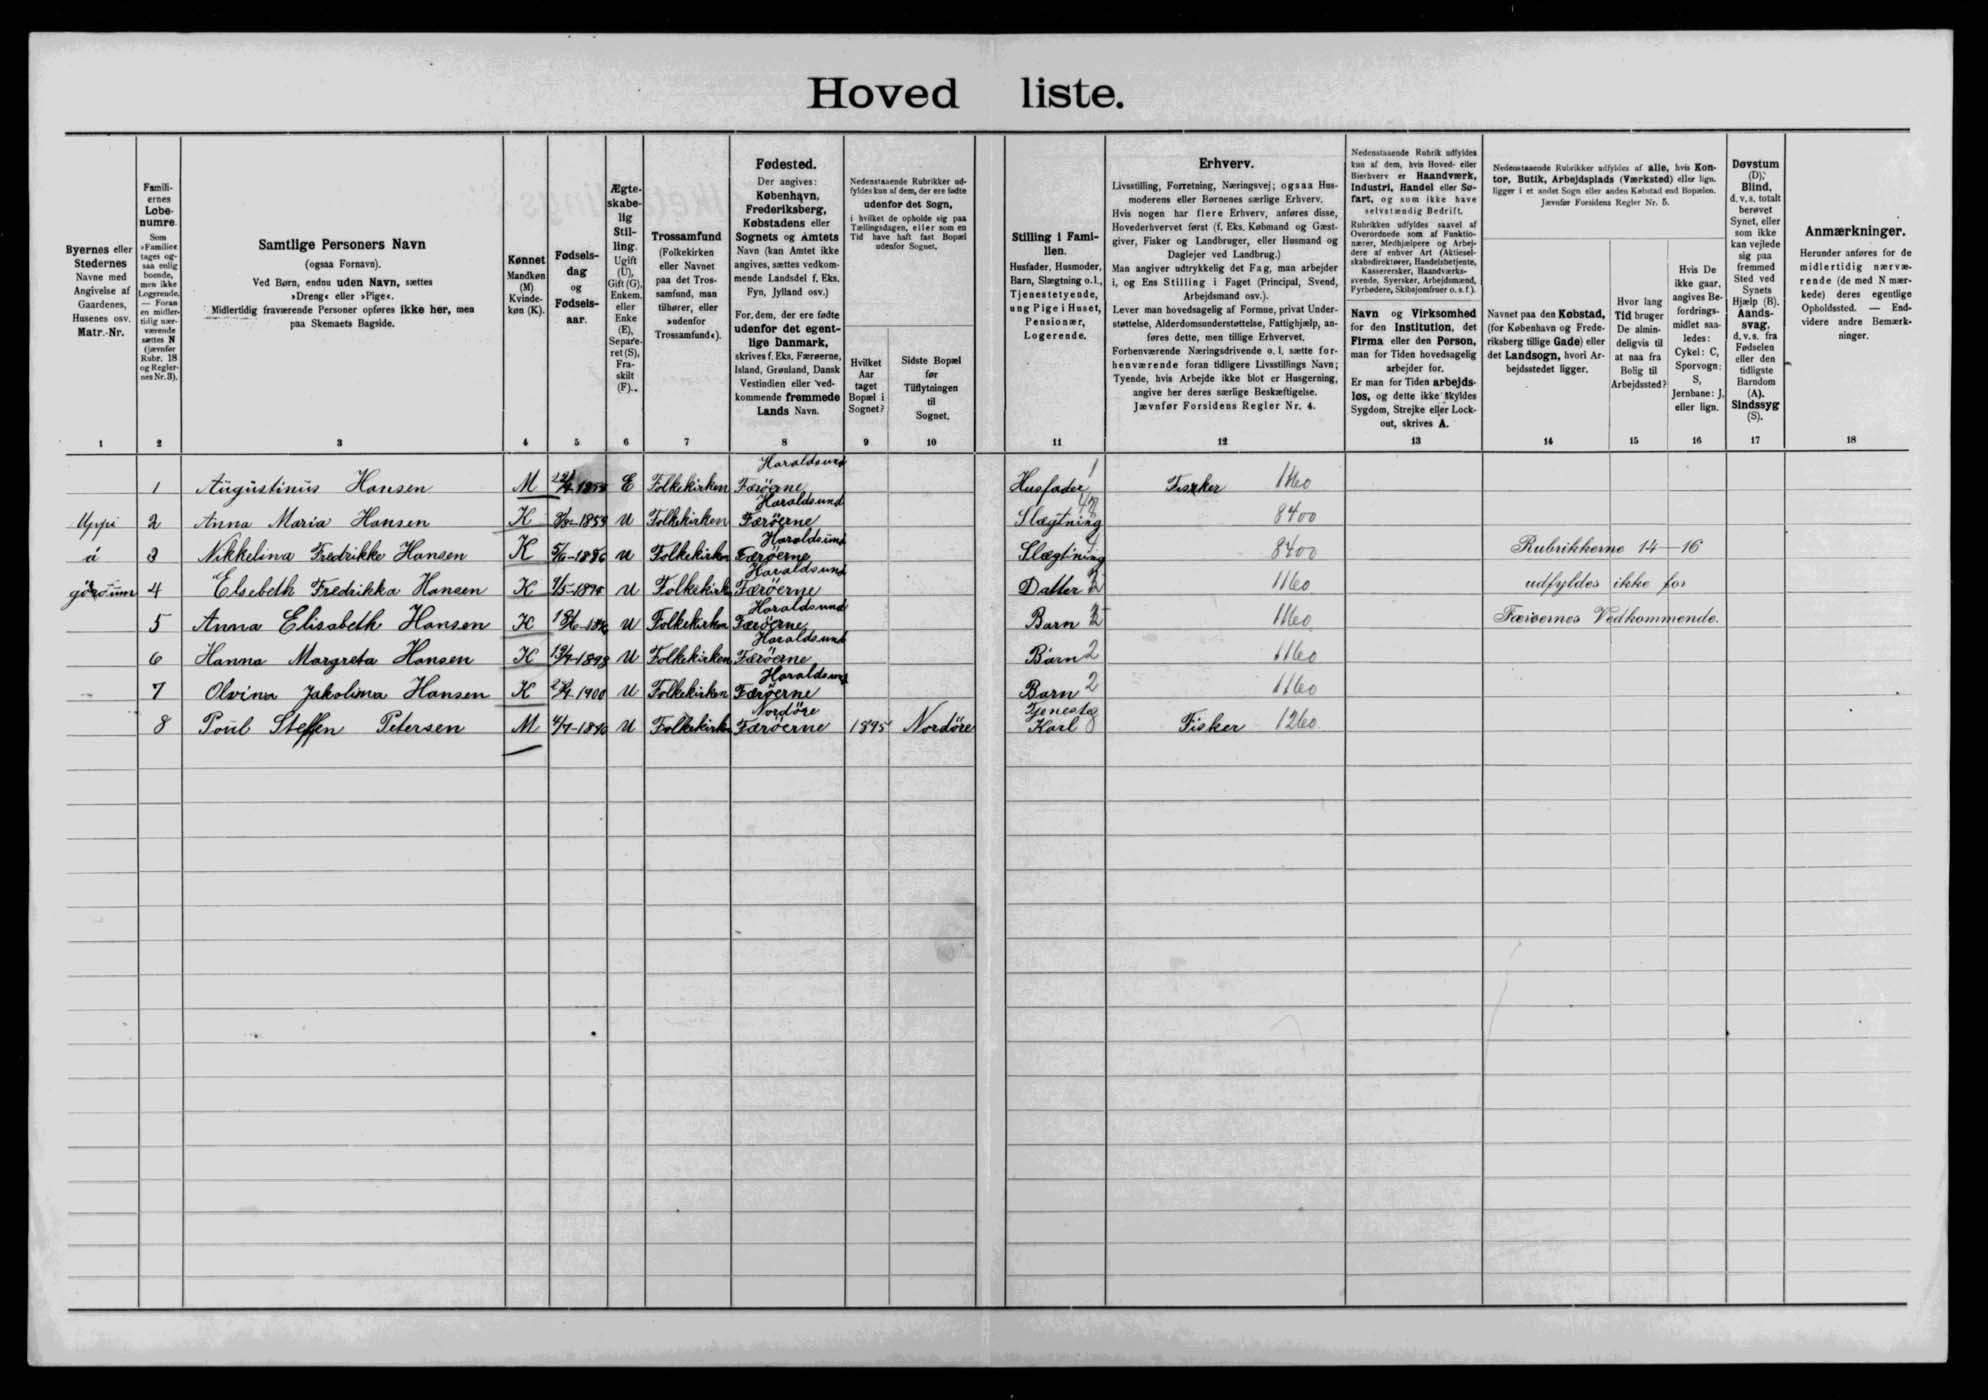 Hoved liste.
Byernes eller
Stedernes
Navne med
Angivelse af
Gaardenes,
Husenes osv.
Matr.-Nr.
Famili-
ernes
Løbe-
numre.
Som
»Familie«
tages og-
saa enlig
boende,
men ikke
Logerende.
— Foran
en midler-
tidig nær-
værende
sættes N
(jævnfør
Rubr. 18
og Regler-
nes Nr. 3).
Samtlige Personers Navn
(ogsaa Fornavn).
Ved Børn, endnu uden Navn, sættes
»Dreng« eller »Pige«.
Midlertidig fraværende Personer opføres ikke her, men
paa Skemaets Bagside.
Kønnet
Mandkøn
(M)
Kvinde-
køn (K).
Fødsels-
dag
og
Fødsels-
aar.
Ægte-
skabe-
lig
Stil-
ling.
Ugift
(U),
Gift (G),
Enkem.
eller
Enke
(E),
Separe-
ret (S),
Fra-
skilt
(F).
Trossamfund
(Folkekirken
eller Navnet
paa det Tros-
samfund, man
tilhører, eller
»udenfor
Trossamfund«).
Fødested.
Der angives:
København,
Frederiksberg,
Købstadens eller
Sognets og Amtets
Navn (kan Amtet ikke
angives, sættes vedkom-
mende Landsdel f. Eks.
Fyn, Jylland osv.)
For dem, der ere fødte
udenfor det egent-
lige Danmark,
skrives f. Eks. Færøerne,
Island, Grønland, Dansk
Vestindien eller ved-
kommende fremmede
Lands Navn.
Nedenstaaende Rubrikker ud-
fyldes kun af dem, der ere fødte
udenfor det Sogn,
i hvilket de opholde sig paa
Tællingsdagen, eller som en
Tid have haft fast Bopæl
udenfor Sognet.
Hvilket
Aar
taget
Bopæl i
Sognet?
Sidste Bopæl
før
Tilflytningen
til
Sognet.
Stilling i Fami-
lien.
Husfader, Husmoder,
Barn, Slægtning o. l.,
Tjenestetyende,
ung Pige i Huset,
Pensionær,
Logerende.
Erhverv.
Livsstilling, Forretning, Næringsvej; ogsaa Hus-
moderens eller Børnenes særlige Erhverv.
Hvis nogen har flere Erhverv, anføres disse,
Hovederhvervet først (f. Eks. Købmand og Gæst-
giver, Fisker og Landbruger, eller Husmand og
Daglejer ved Landbrug.)
Man angiver udtrykkelig det Fag, man arbejder
i, og Ens Stilling i Faget (Principal, Svend,
Arbejdsmand osv.).
Lever man hovedsagelig af Formue, privat Under-
støttelse, Alderdomsunderstøttelse, Fattighjælp, an-
føres dette, men tillige Erhvervet.
Forhenværende Næringsdrivende o. l. sætte for-
henværende foran tidligere Livsstillings Navn;
Tyende, hvis Arbejde ikke blot er Husgerning,
angive her deres særlige Beskæftigelse.
Jævnfør Forsidens Regler Nr. 4.
Nedenstaaende Rubrik udfyldes
kun af dem, hvis Hoved- eller
Bierhverv er Haandværk,
Industri, Handel eller Sø-
fart, og som ikke have
selvstændig Bedrift.
Rubrikken udfyldes saavel af
Overordnede som af Funktio-
nærer, Medhjælpere og Arbej-
dere af enhver Art (Aktiesel-
skabsdirektører, Handelsbetjente,
Kasserersker, Haandværks-
svende, Syersker, Arbejdsmænd,
Fyrbødere, Skibsjomfruer o. s. f.).
Navn og Virksomhed
for den Institution, det
Firma eller den Person,
man for Tiden hovedsagelig
arbejder for.
Er man for Tiden arbejds-
løs, og dette ikke skyldes
Sygdom, Strejke eller Lock-
out, skrives A.
Nedenstaaende Rubrikker udfyldes af alle, hvis Kon-
tor, Butik, Arbejdsplads (Værksted) eller lign.
ligger i et andet Sogn eller anden Købstad end Bopælen.
Jævnfør Forsidens Regler Nr. 5.
Navnet paa den Købstad,
(for København og Frede-
riksberg tillige Gade) eller
det Landsogn, hvori Ar-
bejdsstedet ligger.
Hvor lang
Tid bruger
De almin-
deligvis til
at naa fra
Bolig til
Arbejdssted?
Hvis De
ikke gaar,
angives Be-
fordrings-
midlet saa-
ledes:
Cykel: C,
Sporvogn:
S,
Jernbane: J,
eller lign.
Døvstum
(D);
Blind,
d. v. s. totalt
berøvet
Synet, eller
som ikke
kan vejlede
sig paa
fremmed
Sted ved
Synets
Hjælp (B).
Aands-
svag,
d. v. s. fra
Fødselen
eller den
tidligste
Barndom
(A).
Sindssyg
(S).
Anmærkninger.
Herunder anføres for de
midlertidig nærvæ-
rende (de med N mær-
kede) deres egentlige
Opholdssted. — End-
videre andre Bemærk-
ninger.
1 2 3 4 5 6 7 8 9 10 11 12 13 14 15 16 17 18
Haraldsund
1 Augustinus Hansen M E Folkekirken Færöerne Husfader 1 Fisker 1160
Haraldsund
Uppi 2 Anna Maria Hansen K U Folkekirken Færöerne Slægtning 8400
Haraldsund
á 3 Nikkelina Fredrikke Hansen K U Folkekirken Færöerne Slægtning 8400 Rubrikkerne 14–16
Haraldsund
4 Elsebeth Fredrikka Hansen K U Folkekirken Færöerne Datter 2 1160 udfyldes ikke for
Haraldsund
5 Anna Elisabeth Hansen K U Folkekirken Færöerne Barn 2 1160 Færøernes Vedkommende.
Haraldsund
6 Hanna Margreta Hansen K U Folkekirken Færöerne Barn 2 1160
Haraldsund
7 Olvina Jakolina Hansen K U Folkekirken Færöerne Barn 2 1160
Nordöre Tjeneste
8 Poul Steffen Petersen M U Folkekirken Færöerne 1895 Nordöre Karl 8 Fisker 1260